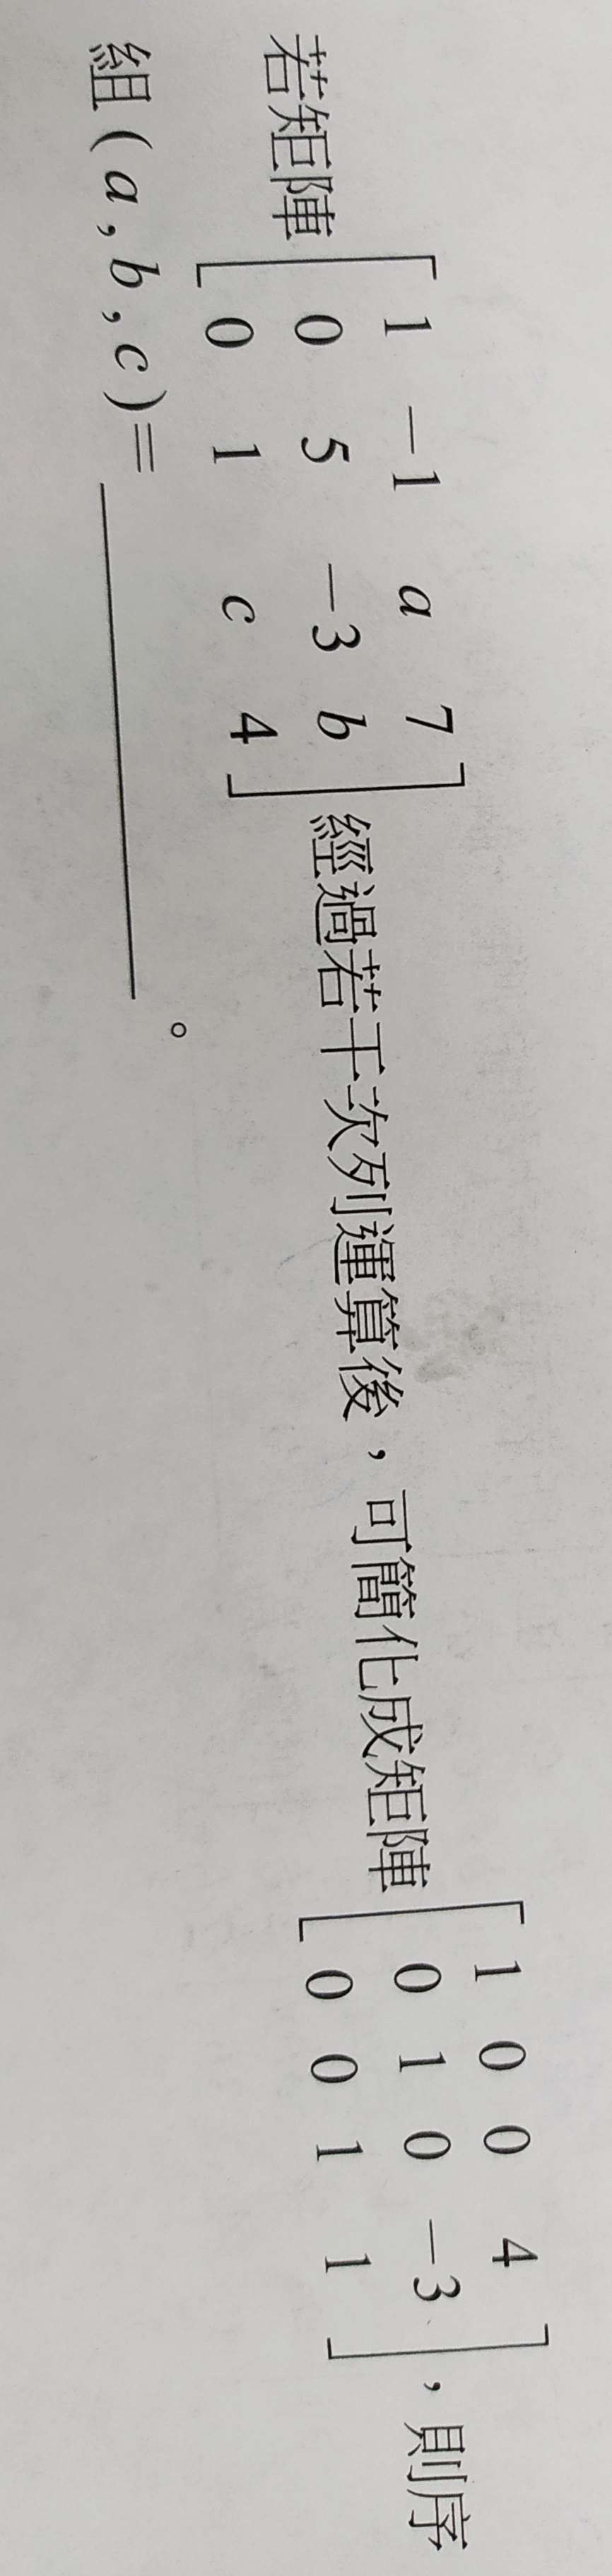 若矩陣 [ 1 −1 a 7 ; 0 5 −3 b ; 0 1 c 4 ] 經過若干次列運算後，可簡化成矩陣 [ 1 0 0 4 ; 0 1 0 −3 ; 0 0 1 1 ]，則序
組(a,b,c)=＿＿＿＿＿＿。